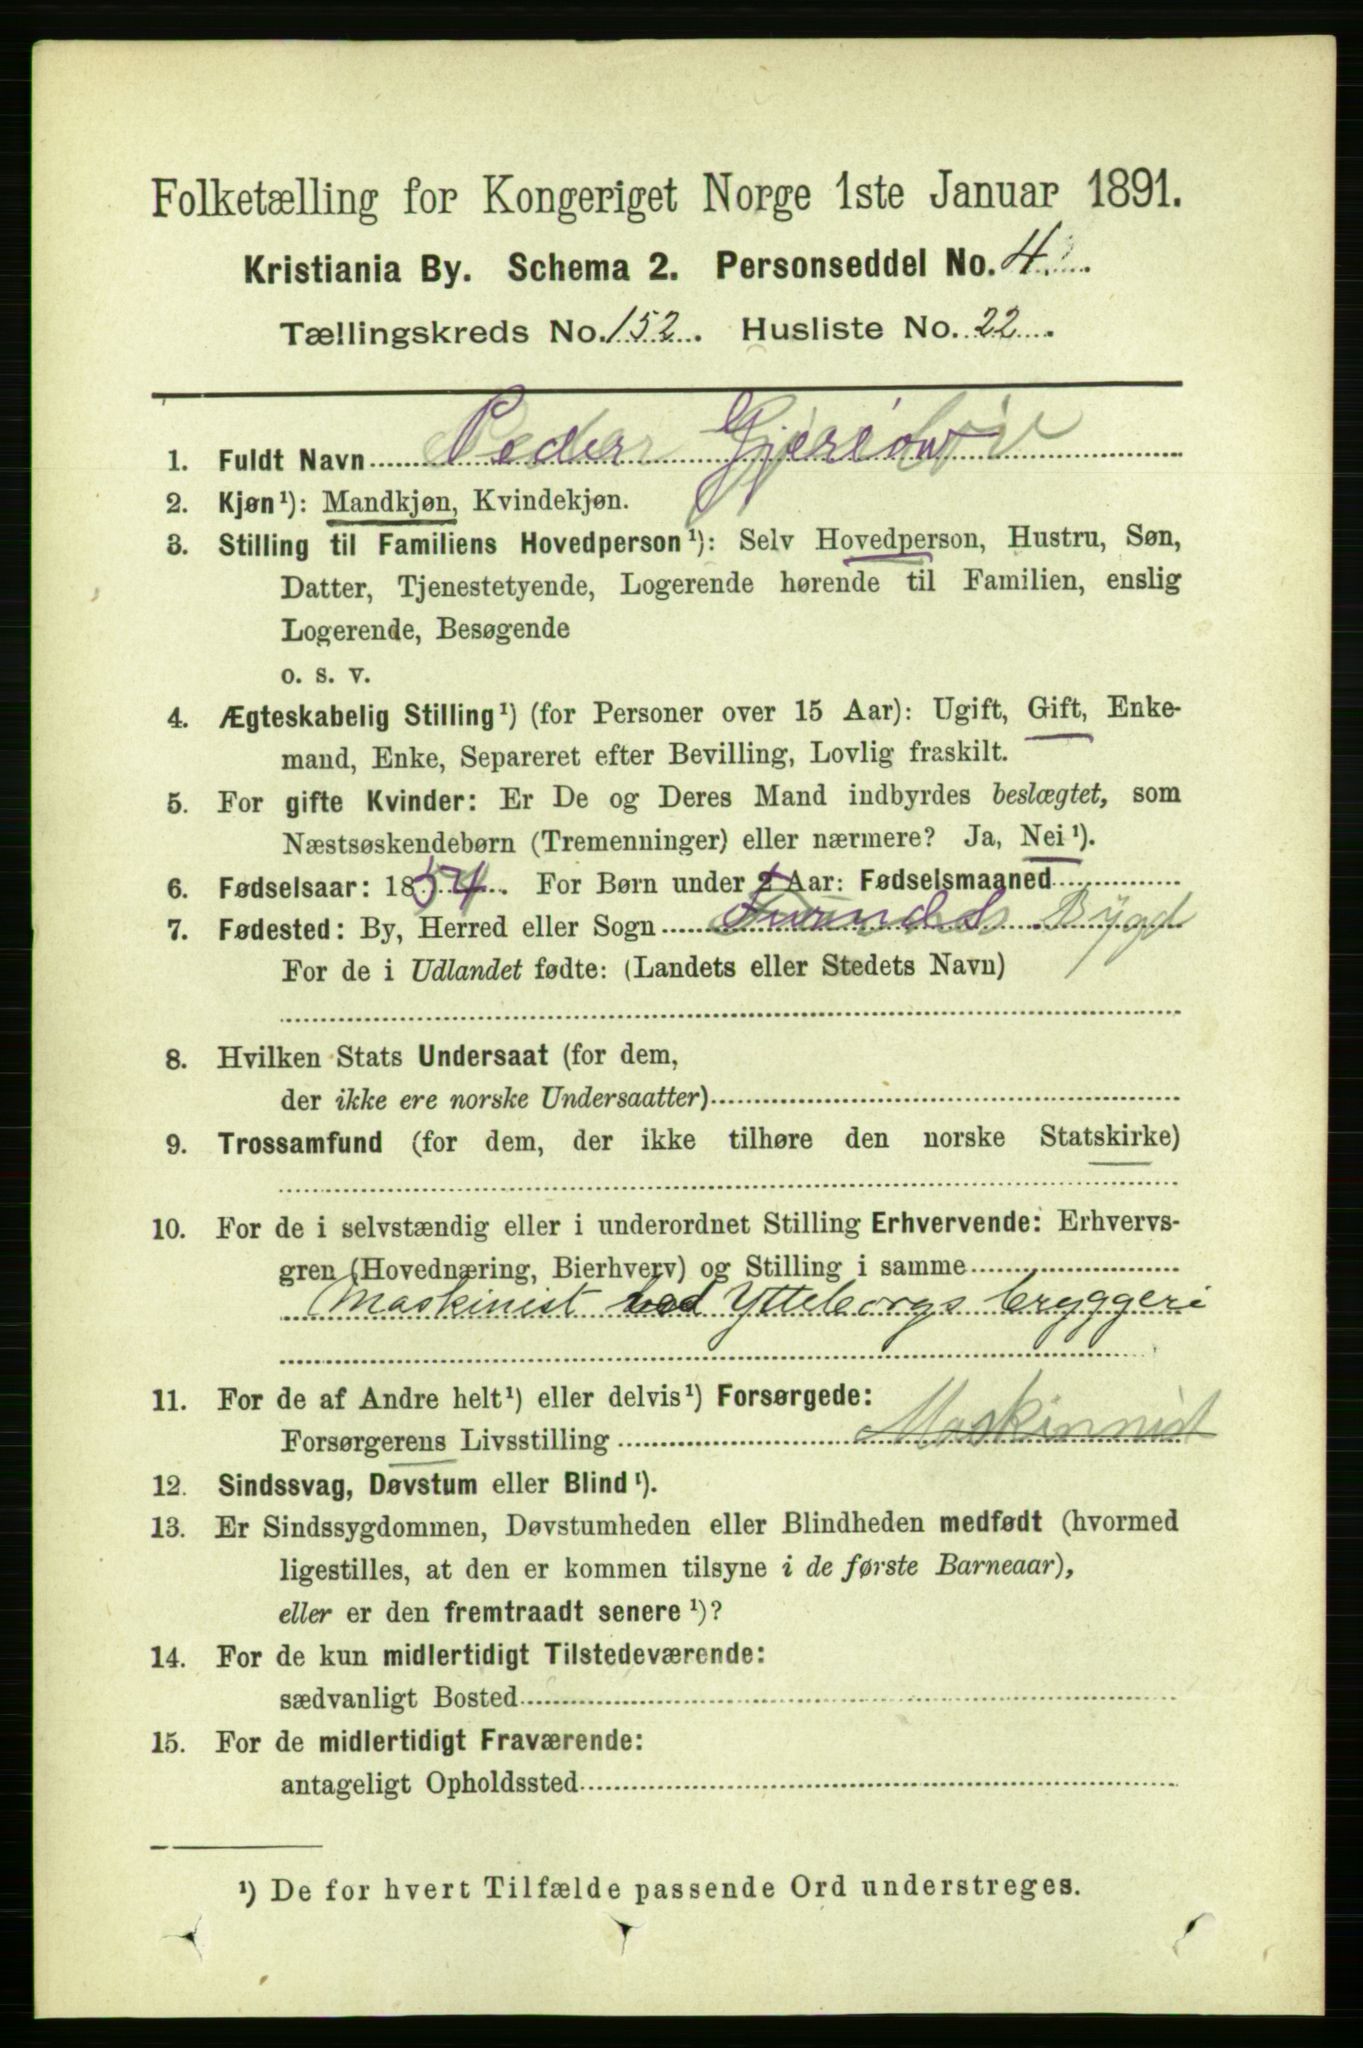 Folketælling for Kongeriget Norge 1ste Januar 1891.
Kristiania By. Schema 2. Personseddel No. 4
Tællingskreds No. 152. Husliste No. 22.
1. Fuldt Navn Peder
2. Kjøn¹): Mandkjøn, Kvindekjøn.
3. Stilling til Familiens Hovedperson¹): Selv Hovedperson, Hustru, Søn,
Datter, Tjenestetyende, Logerende hørende til Familien, enslig
Logerende, Besøgende
o. s. v.
4. Ægteskabelig Stilling¹) (for Personer over 15 Aar): Ugift, Gift, Enke-
mand, Enke, Separeret efter Bevilling, Lovlig fraskilt.
5. For gifte Kvinder: Er De og Deres Mand indbyrdes beslægtet, som
Næstsøskendebørn (Tremenninger) eller nærmere? Ja, Nei¹).
6. Fødselsaar: 1854. For Børn under 2 Aar: Fødselsmaaned
7. Fødested: By, Herred eller Sogn Bygd
For de i Udlandet fødte: (Landets eller Stedets Navn)
8. Hvilken Stats Undersaat (for dem,
der ikke ere norske Undersaatter)
9. Trossamfund (for dem, der ikke tilhøre den norske Statskirke)
10. For de i selvstændig eller i underordnet Stilling Erhvervende: Erhvervs-
gren (Hovednæring, Bierhverv) og Stilling i samme
Maskinist ved Ytteborgs bryggeri
11. For de af Andre helt¹) eller delvis¹) Forsørgede:
Forsørgerens Livsstilling Maskinnist
12. Sindssvag, Døvstum eller Blind¹).
13. Er Sindssygdommen, Døvstumheden eller Blindheden medfødt (hvormed
ligestilles, at den er kommen tilsyne i de første Barneaar),
eller er den fremtraadt senere¹)?
14. For de kun midlertidigt Tilstedeværende:
sædvanligt Bosted
15. For de midlertidigt Fraværende:
antageligt Opholdssted
¹) De for hvert Tilfælde passende Ord understreges.